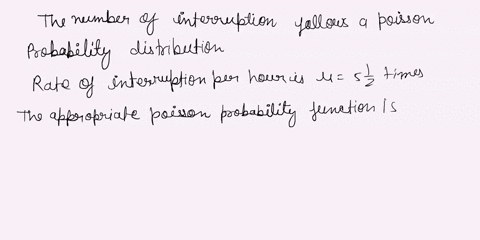 The number of interruption follows a poisson
Probability distribution
Rate of interruption per hour is u = 5 1/2 times
The appropriate poisson probability function is